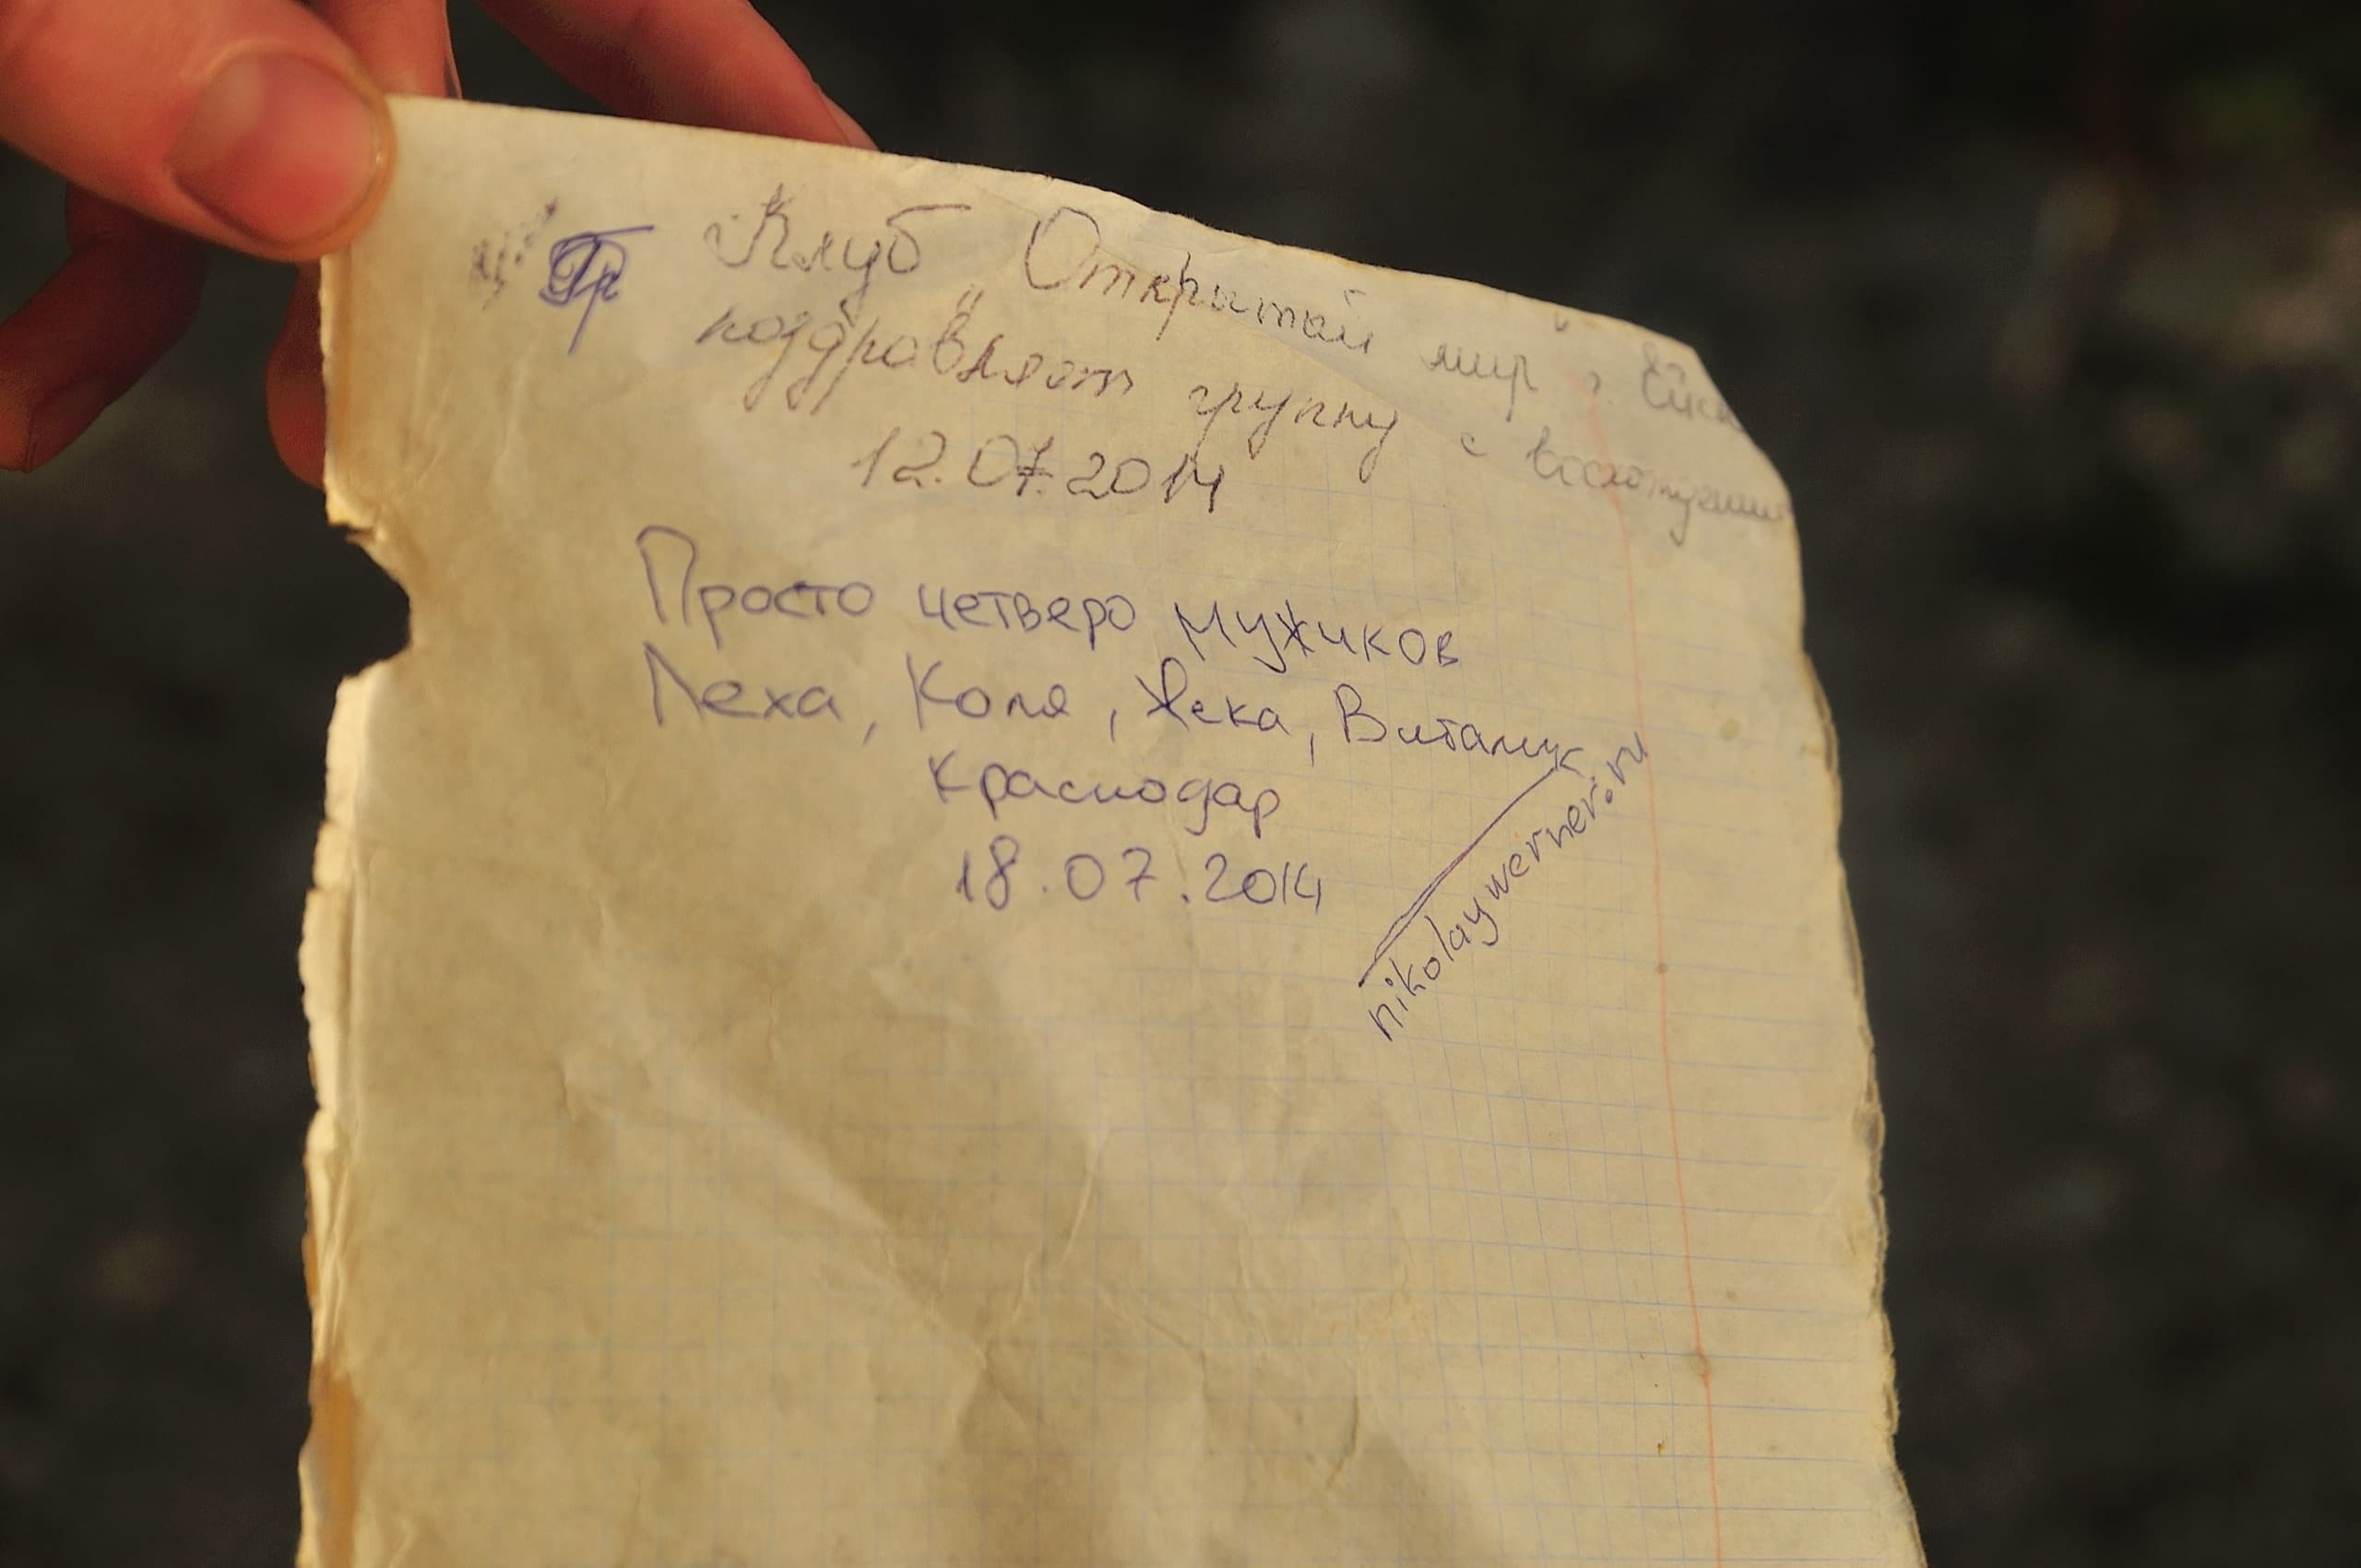 Клуб „Открытой мир" г. Ейск
поздравляет группу с восхождением
12.07.2014
Просто четверо мужиков
Леха, Коля, Жека, Виталик
Краснодар
18.07.2014
nikolaywerner.ru